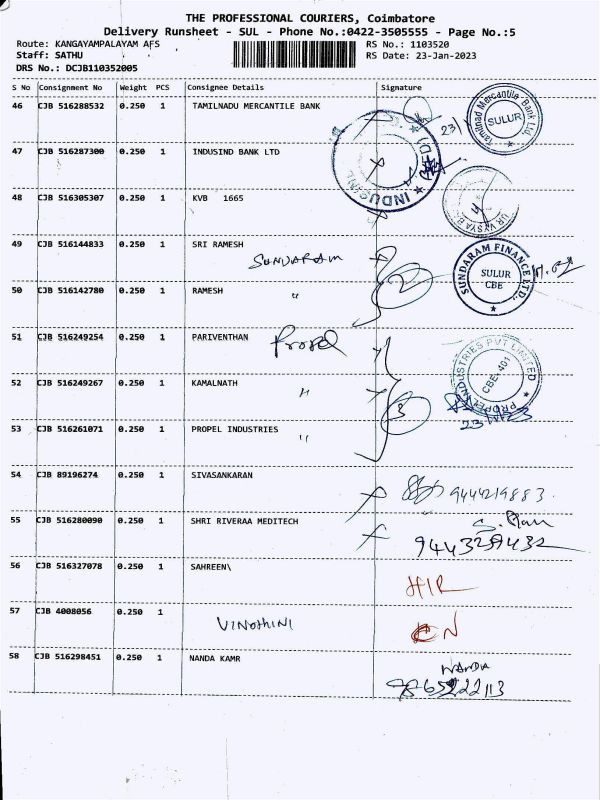 THE PROFESSIONAL COURIERS, Coimbatore
Delivery Runsheet - SUL - Phone No.:0422-3505555 - Page No.:5
Route: KANGAYAMPALAYAM AFS RS No.: 1103520
Staff: SATHU RS Date: 23-Jan-2023
DRS No.: DCJB110352005
S No Consignment No Weight PCS Consignee Details Signature
46 CJB 516288532 0.250 1 TAMILNADU MERCANTILE BANK
Tamilnad Mercantile Bank Ltd. SULUR
23/
47 CJB 516287300 0.250 1 INDUSIND BANK LTD
48 CJB 516305307 0.250 1 KVB 1665
49 CJB 516144833 0.250 1 SRI RAMESH
SUNDARAM
SUNDARAM FINANCE LTD., SULUR CBE
2
50 CJB 516142780 0.250 1 RAMESH "
51 CJB 516249254 0.250 1 PARIVENTHAN
Propel
PROPEL INDUSTRIES PVT LIMITED CBE-401
52 CJB 516249267 0.250 1 KAMALNATH "
3
53 CJB 516261071 0.250 1 PROPEL INDUSTRIES "
54 CJB 89196274 0.250 1 SIVASANKARAN
9444219883
55 CJB 516280090 0.250 1 SHRI RIVERAA MEDITECH
56 CJB 516327078 0.250 1 SAHREEN\
HIR
57 CJB 4008056 0.250 1
VINOTHINI
58 CJB 516298451 0.250 1 NANDA KAMR
NANDA
9865222113